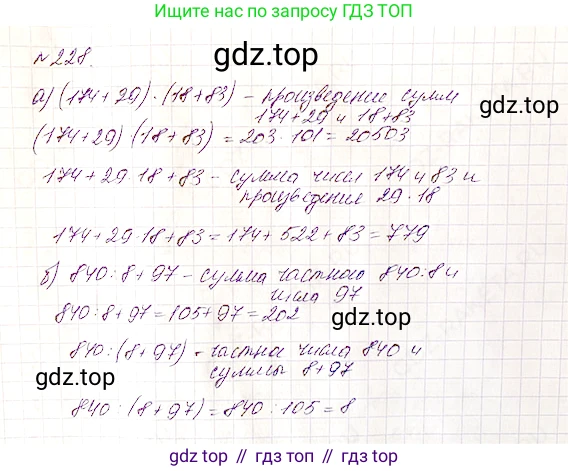 Ищите нас по запросу ГДЗ ТОП
№228.
gdz.top
а) (174+29)·(18+83) – произведение сумм
174+29 и 18+83
gdz.top
(174+29)(18+83)=203·101=20503
174+29·18+83 – сумма чисел 174 и 83 и
произведения 29·18
174+29·18+83=174+522+83=779
б) 840:8+97 – сумма частного 840:8 и
числа 97
840:8+97=105+97=202
gdz.top
840:(8+97) – частна числа 840 и
суммы 8+97
gdz.top
840:(8+97)=840:105=8
gdz.top // гдз топ // гдз.топ